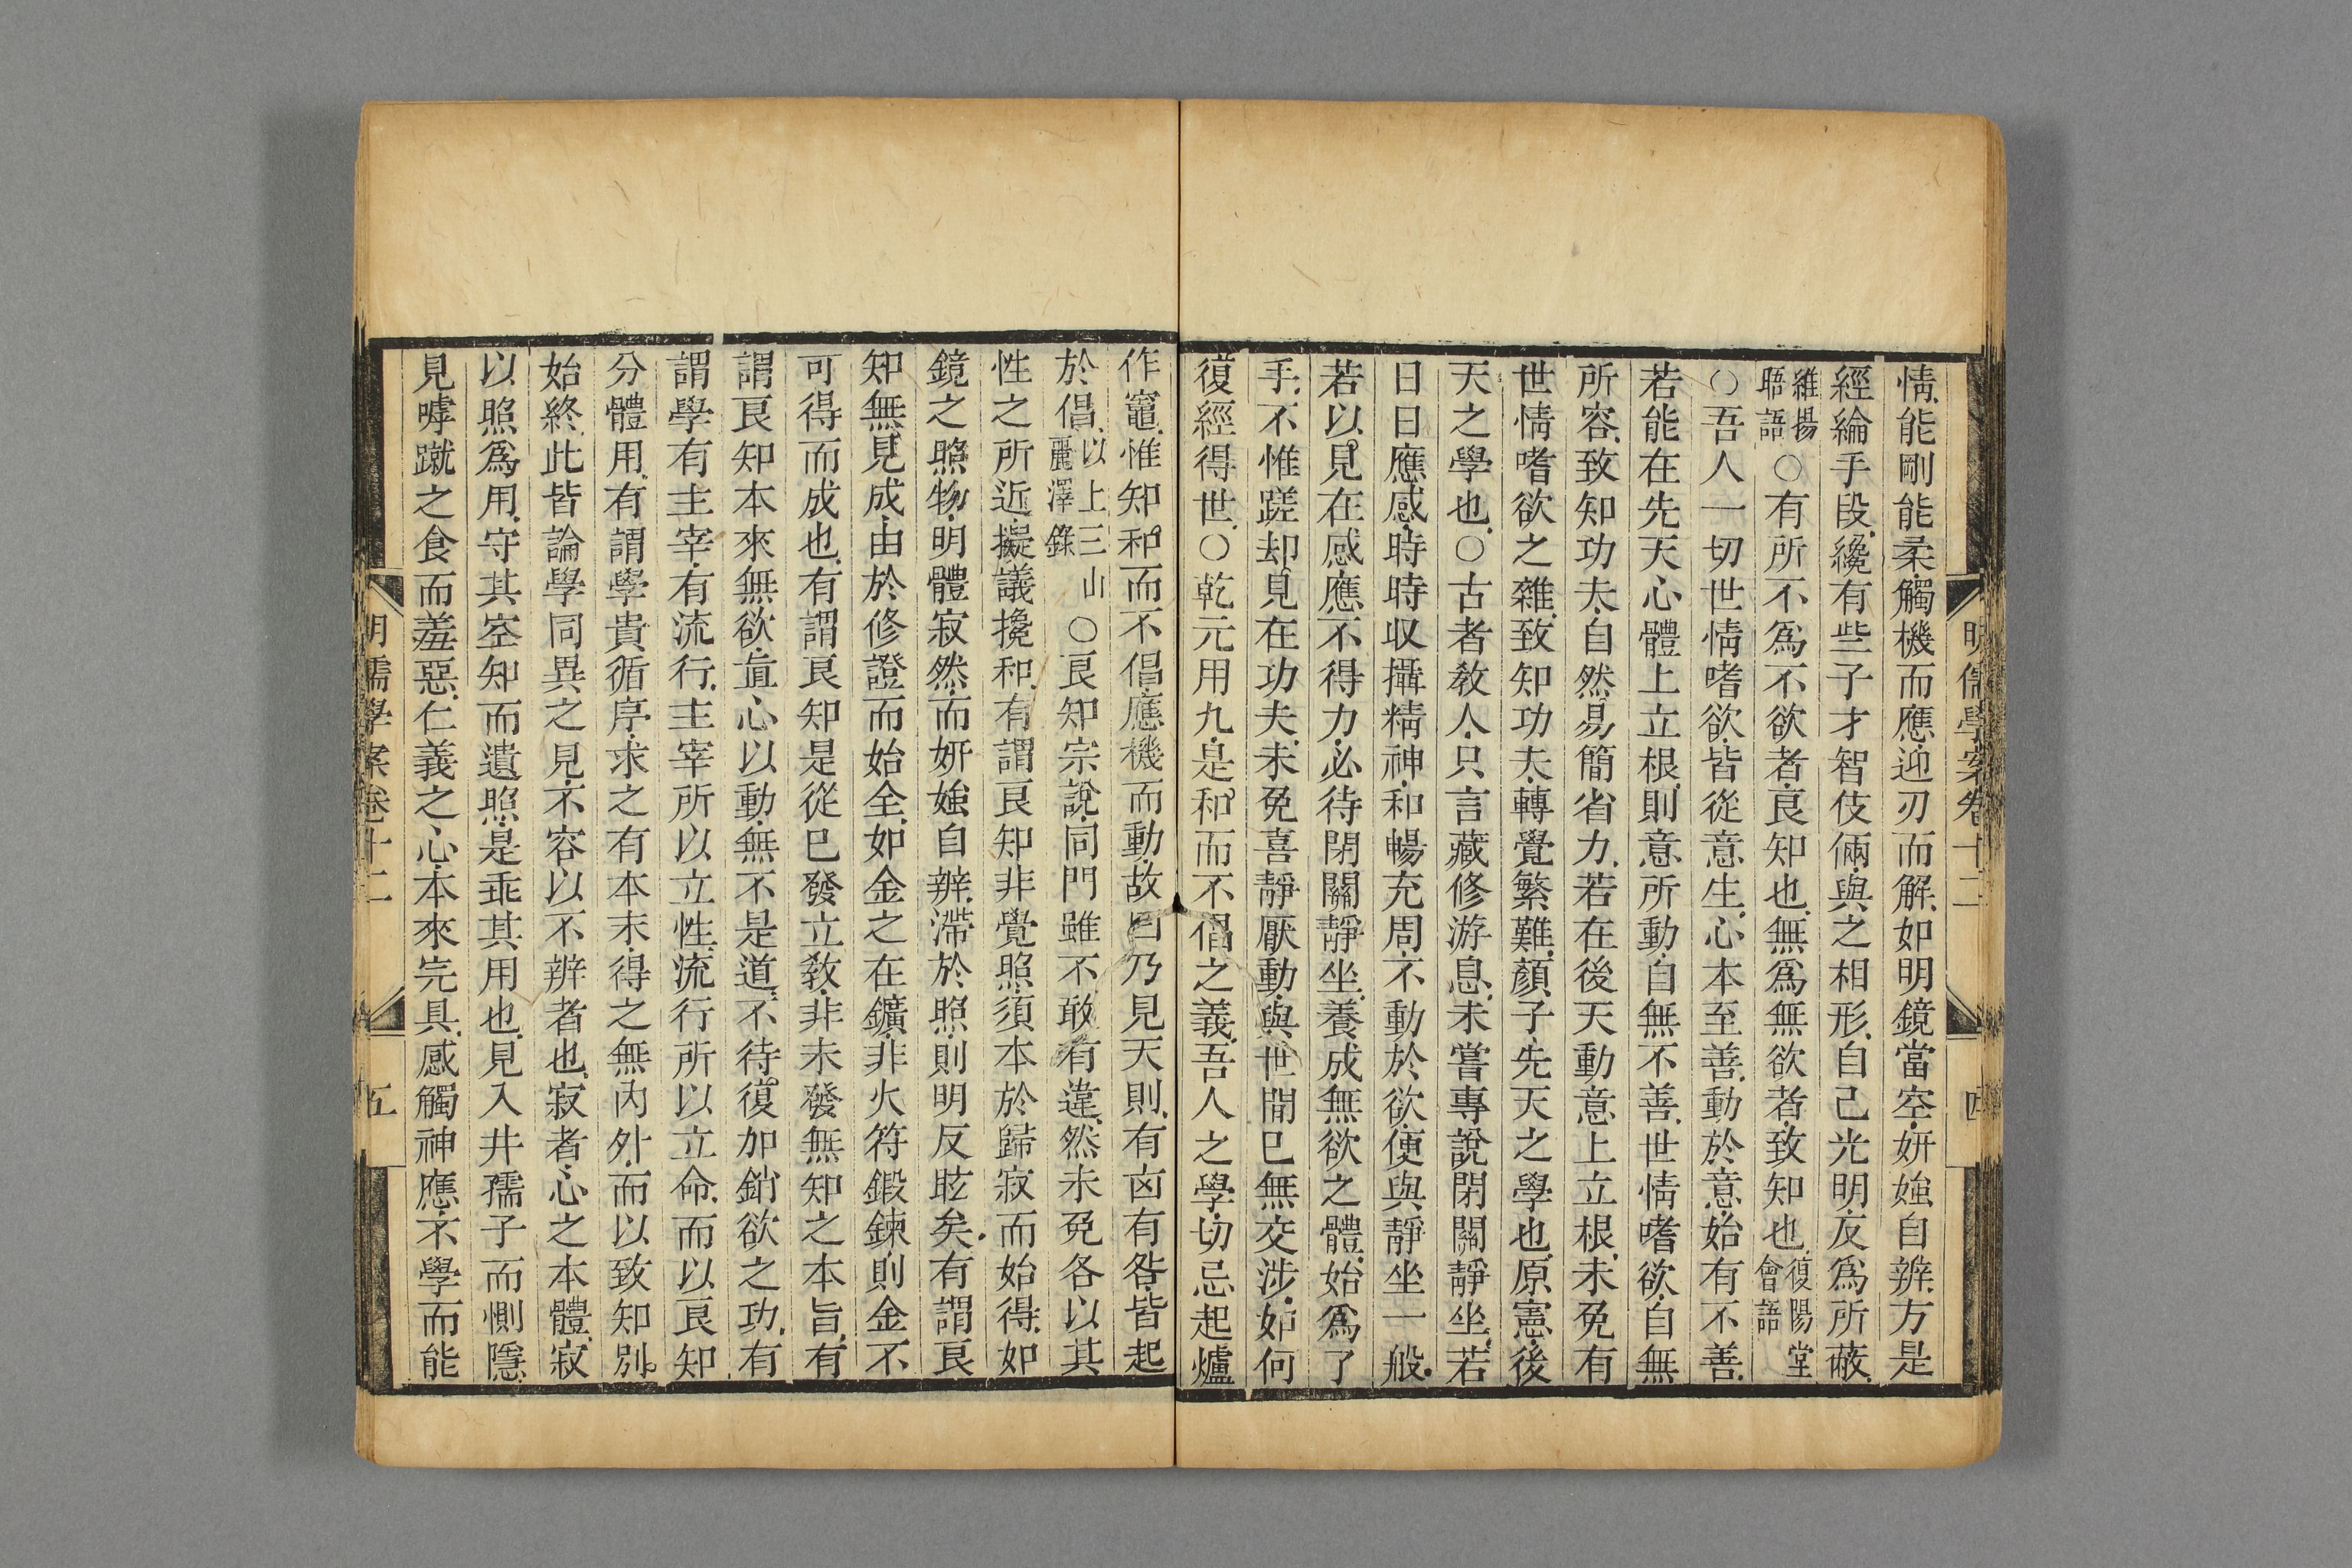 明儒學案卷十二
四
情、能剛能柔、觸機而應、迎刃而解、如明鏡當空、妍媸自辨、方是
經綸手段、纔有些子才智伎倆、與之相形、自己光明、反爲所蔽、
維揚晤語○有所不爲不欲者、良知也、無爲無欲者、致知也、復陽堂會語
○吾人一切世情嗜欲、皆從意生、心本至善、動於意、始有不善、
若能在先天心體上立根、則意所動、自無不善、世情嗜欲、自無
所容、致知功夫、自然易簡省力、若在後天動意上立根、未免有
世情嗜欲之雜、致知功夫、轉覺繁難、顏子、先天之學也、原憲、後
天之學也、○古者敎人、只言藏修游息、未嘗專說閉關靜坐、若
日日應感、時時収攝精神、和暢充周、不動於欲、便與靜坐一般、
若以見在感應、不得力、必待閉關靜坐、養成無欲之體、始爲了
手、不惟蹉却見在功夫、未免喜靜厭動、與世間已無交涉、如何
復經得世、○乾元用九、是和而不倡之義、吾人之學、切忌起爐
作竈、惟知和而不倡、應機而動、故曰乃見天則、有凶有咎、皆起
於倡、以上三山麗澤錄○良知宗說、同門雖不敢有違、然未免各以其
性之所近、擬議攙和、有謂良知非覺照、須本於歸寂而始得、如
鏡之照物、明體寂然、而妍媸自辨、滯於照、則明反眩矣、有謂良
知無見成、由於修證而始全、如金之在鑛、非火符鍛鍊、則金不
可得而成也、有謂良知是從已發立敎、非未發無知之本旨、有
謂良知本來無欲、直心以動、無不是道、不待復加銷欲之功、有
謂學有主宰、有流行、主宰所以立性、流行所以立命、而以良知
分體用、有謂學貴循序、求之有本末、得之無內外、而以致知別
始終、此皆論學同異之見、不容以不辨者也、寂者、心之本體、寂
以照爲用、守其空知而遺照、是乖其用也、見入井孺子而惻隱、
見嘑蹴之食而羞惡、仁義之心、本來完具、感觸神應、不學而能
明儒學案卷十二
五